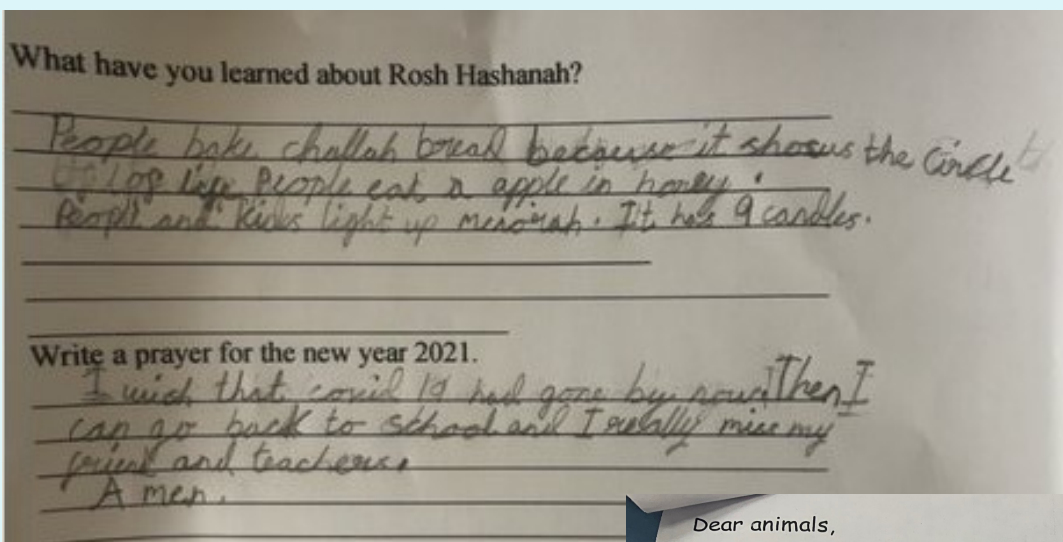 What have you learned about Rosh Hashanah?
People bake challah bread because it shows the Circle
of life. People eat a apple in honey.
People and kids light up menorah. It has 9 candles.
Write a prayer for the new year 2021.
I wish that covid 19 had gone by now. Then I
can go back to school and I really miss my
friend and teachers.
A men.
Dear animals,